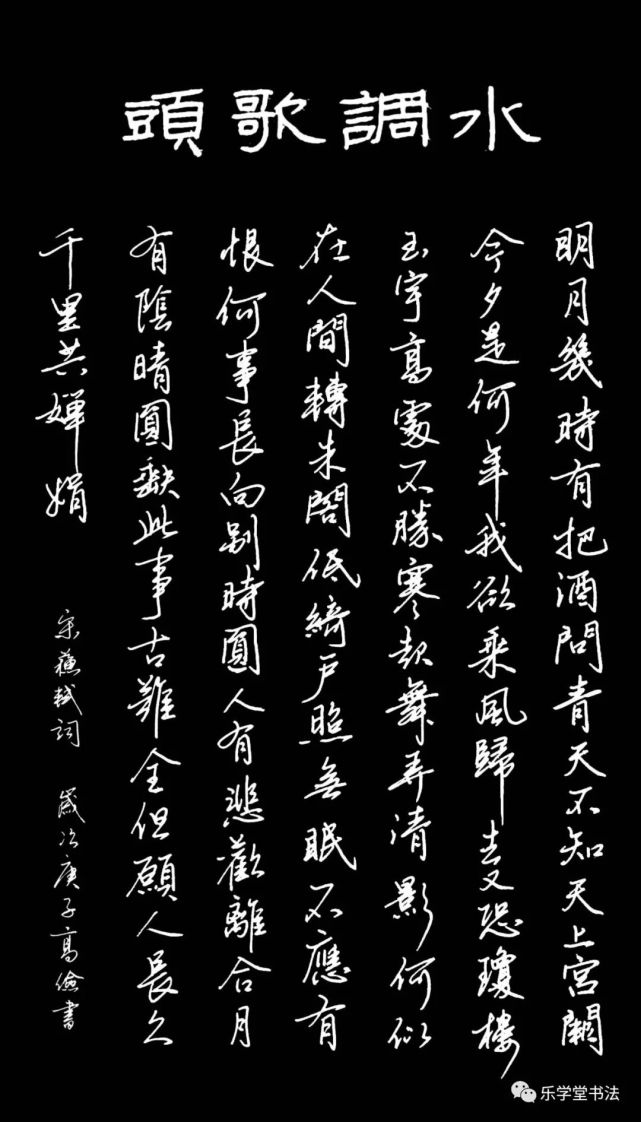 水調歌頭
明月幾時有把酒問青天不知天上宮闕
今夕是何年我欲乘風歸去又恐瓊樓
玉宇高處不勝寒起舞弄清影何似
在人間轉朱閣低綺戶照無眠不應有
恨何事長向別時圓人有悲歡離合月
有陰晴圓缺此事古難全但願人長久
千里共嬋娟
宋蘇軾詞 歲次庚子高儉書
乐学堂书法